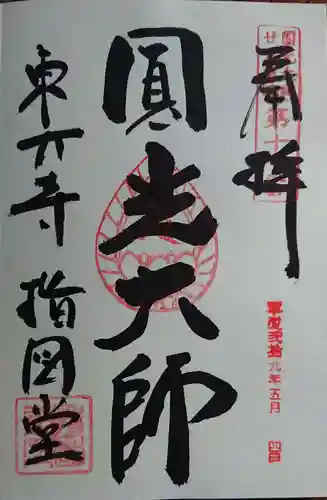 奉拝
圓光大師
東大寺 指図堂
平成弐拾九年五月 四日